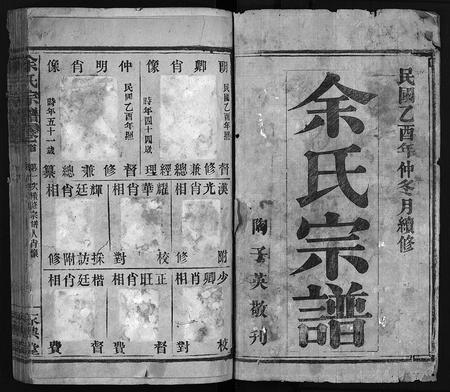 民國乙酉年仲冬月續修
余氏宗譜
陶子英敬刊
開卿肖像
民國乙酉年照
時年四十四歲
督修兼總經理
仲明肖像
民國乙酉年照
時年五十一歲
督修兼總纂
漢光肖相
附修
耀華肖相
校對
輝廷肖相
採訪附修
少卿肖相
校對
正旺肖相
督費
楷廷肖相
督費
余氏宗譜